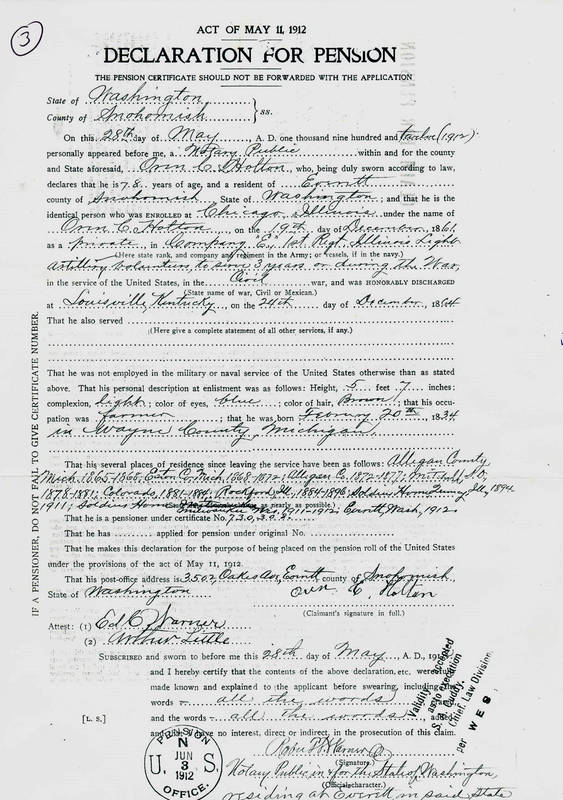 3
ACT OF MAY 11, 1912
DECLARATION FOR PENSION
THE PENSION CERTIFICATE SHOULD NOT BE FORWARDED WITH THE APPLICATION
State of Washington
County of Snohomish } ss.
On this 28th day of May, A. D. one thousand nine hundred and twelve (1912)
personally appeared before me, a Notary Public within and for the county
and State aforesaid, Oren C. Holton, who, being duly sworn according to law,
declares that he is 78 years of age, and a resident of Everett
county of Snohomish, State of Washington; and that he is the
identical person who was ENROLLED at Chicago, Illinois under the name of
Oren C. Holton, on the 19th day of December, 1861,
as a private, in Company E, 1st Regt. Illinois Light
(Here state rank, and company and regiment in the Army; or vessels, if in the navy.)
Artillery Volunteers, to serve 3 years or during the War,
in the service of the United States, in the Civil war, and was HONORABLY DISCHARGED
(State name of war, Civil or Mexican.)
at Louisville, Kentucky, on the 24th day of December, 1864
That he also served
(Here give a complete statement of all other services, if any.)
That he was not employed in the military or naval service of the United States otherwise than as stated
above. That his personal description at enlistment was as follows: Height, 5 feet 7 inches;
complexion, light; color of eyes, blue; color of hair, Brown; that his occu-
pation was farmer; that he was born February 20th 1834
in Wayne County, Michigan
That his several places of residence since leaving the service have been as follows: Allegan County
Mich. 1865-1868; Eaton Co. Mich. 1868-1872; Allegan Co. 1872-1877; Mitchell, S.D.
1878-1881; Colorado, 1881-1884; Rockford Ill, 1884-1896; Soldiers Home Quincy Ill, 1894
1911; Soldiers Home Milwaukee Wis. 1911-1912; Everett, Wash, 1912
as nearly as possible.)
That he is a pensioner under certificate No. 730,302
That he has applied for pension under original No.
That he makes this declaration for the purpose of being placed on the pension roll of the United States
under the provisions of the act of May 11, 1912.
That his post-office address is 3502 Oakes Ave, Everett county of Snohomish,
State of Washington
Oren C. Holton
(Claimant's signature in full.)
Attest: (1) Ed C. Warner
(2) Arthur Little
SUBSCRIBED and sworn to before me this 28th day of May A. D., 191
and I hereby certify that the contents of the above declaration, etc. were
made known and explained to the applicant before swearing, including the
words all the words
[L. S.] and the words all the words added
and have no interest, direct or indirect, in the prosecution of this claim.
(Signature.)
Notary Public in & for the State of Washington,
(Official character.)
residing at Everett in said State
IF A PENSIONER, DO NOT FAIL TO GIVE CERTIFICATE NUMBER.
Validity accepted
as to execution
Chief, Law Division,
per WES
PENSION
N
JUN
U. 3 S.
1912
OFFICE.